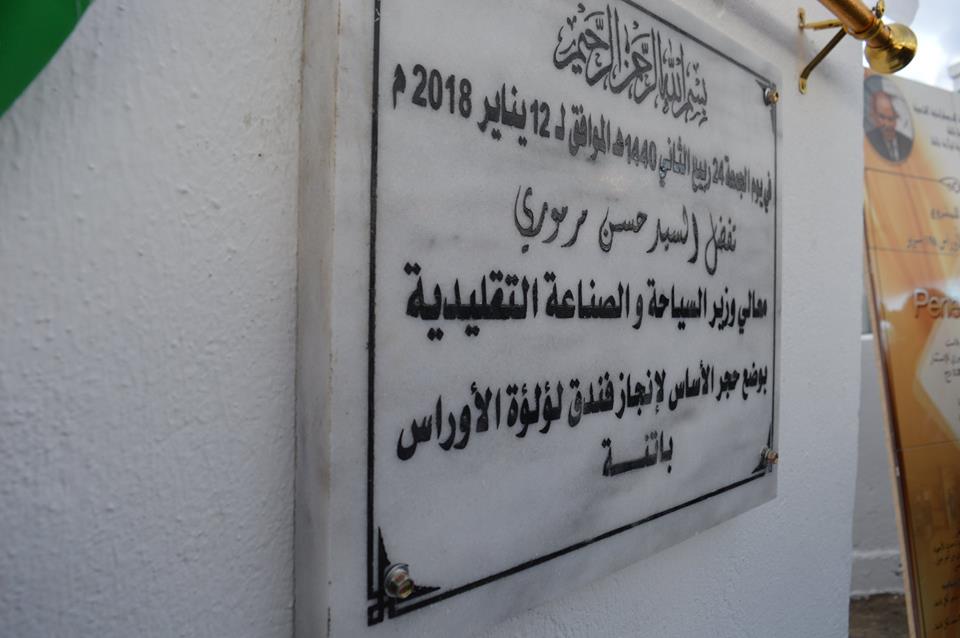 بسم الله الرحمن الرحيم
في يوم الجمعة 24 ربيع الثاني 1440هـ الموافق لـ 12 يناير 2018 م
تفضل السيد حسن مرموري
معالي وزير السياحة و الصناعة التقليدية
بوضع حجر الأساس لإنجاز فندق لؤلؤة الأوراس
باتنــة